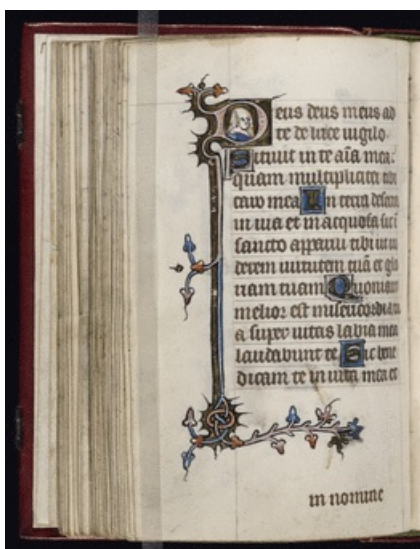 Deus deus meus ad
te de luce uigilo
Sitiuit in te aīa mea
quam multipliciter tibi
caro mea In terra deserta
in uia et in acquosa sic in
sancto apparui tibi ut ui
derem uirtutem tuā et glo
riam tuam Quoniam
melior est misericordia tua
super uitas labia mea
laudabunt te Sic bene
dicam te in uita mea et
in nomine